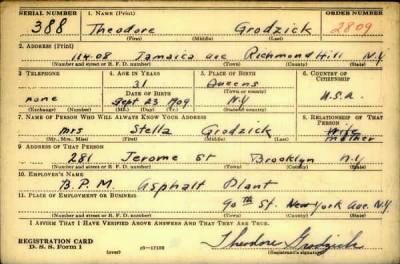 SERIAL NUMBER 1. NAME (Print) ORDER NUMBER
388 Theodore Grodzick 2809
(First) (Middle) (Last)
2. ADDRESS (Print)
114-08 Jamaica ave Richmond Hill N.Y
(Number and street or R. F. D. number) (Town) (County) (State)
3. TELEPHONE 4. AGE IN YEARS 5. PLACE OF BIRTH 6. COUNTRY OF CITIZENSHIP
31 Queens
DATE OF BIRTH (Town or county)
none Sept 23 1909 N.Y U.S.A.
(Exchange) (Number) (Mo.) (Day) (Yr.) (State or country)
7. NAME OF PERSON WHO WILL ALWAYS KNOW YOUR ADDRESS 8. RELATIONSHIP OF THAT PERSON
Mrs Stella Grodzick Wife Mother
(Mr., Mrs., Miss) (First) (Middle) (Last)
9. ADDRESS OF THAT PERSON
281 Jerome St Brooklyn N.Y
(Number and street or R. F. D. number) (Town) (County) (State)
10. EMPLOYER'S NAME
B.P.M. Asphalt Plant
11. PLACE OF EMPLOYMENT OR BUSINESS
90th St. New York Ave. N.Y.
(Number and street or R. F. D. number) (Town) (County) (State)
I AFFIRM THAT I HAVE VERIFIED ABOVE ANSWERS AND THAT THEY ARE TRUE.
REGISTRATION CARD
D. S. S. FORM 1 (over) 16—17105 Theodore Grodzick
(Registrant's signature)